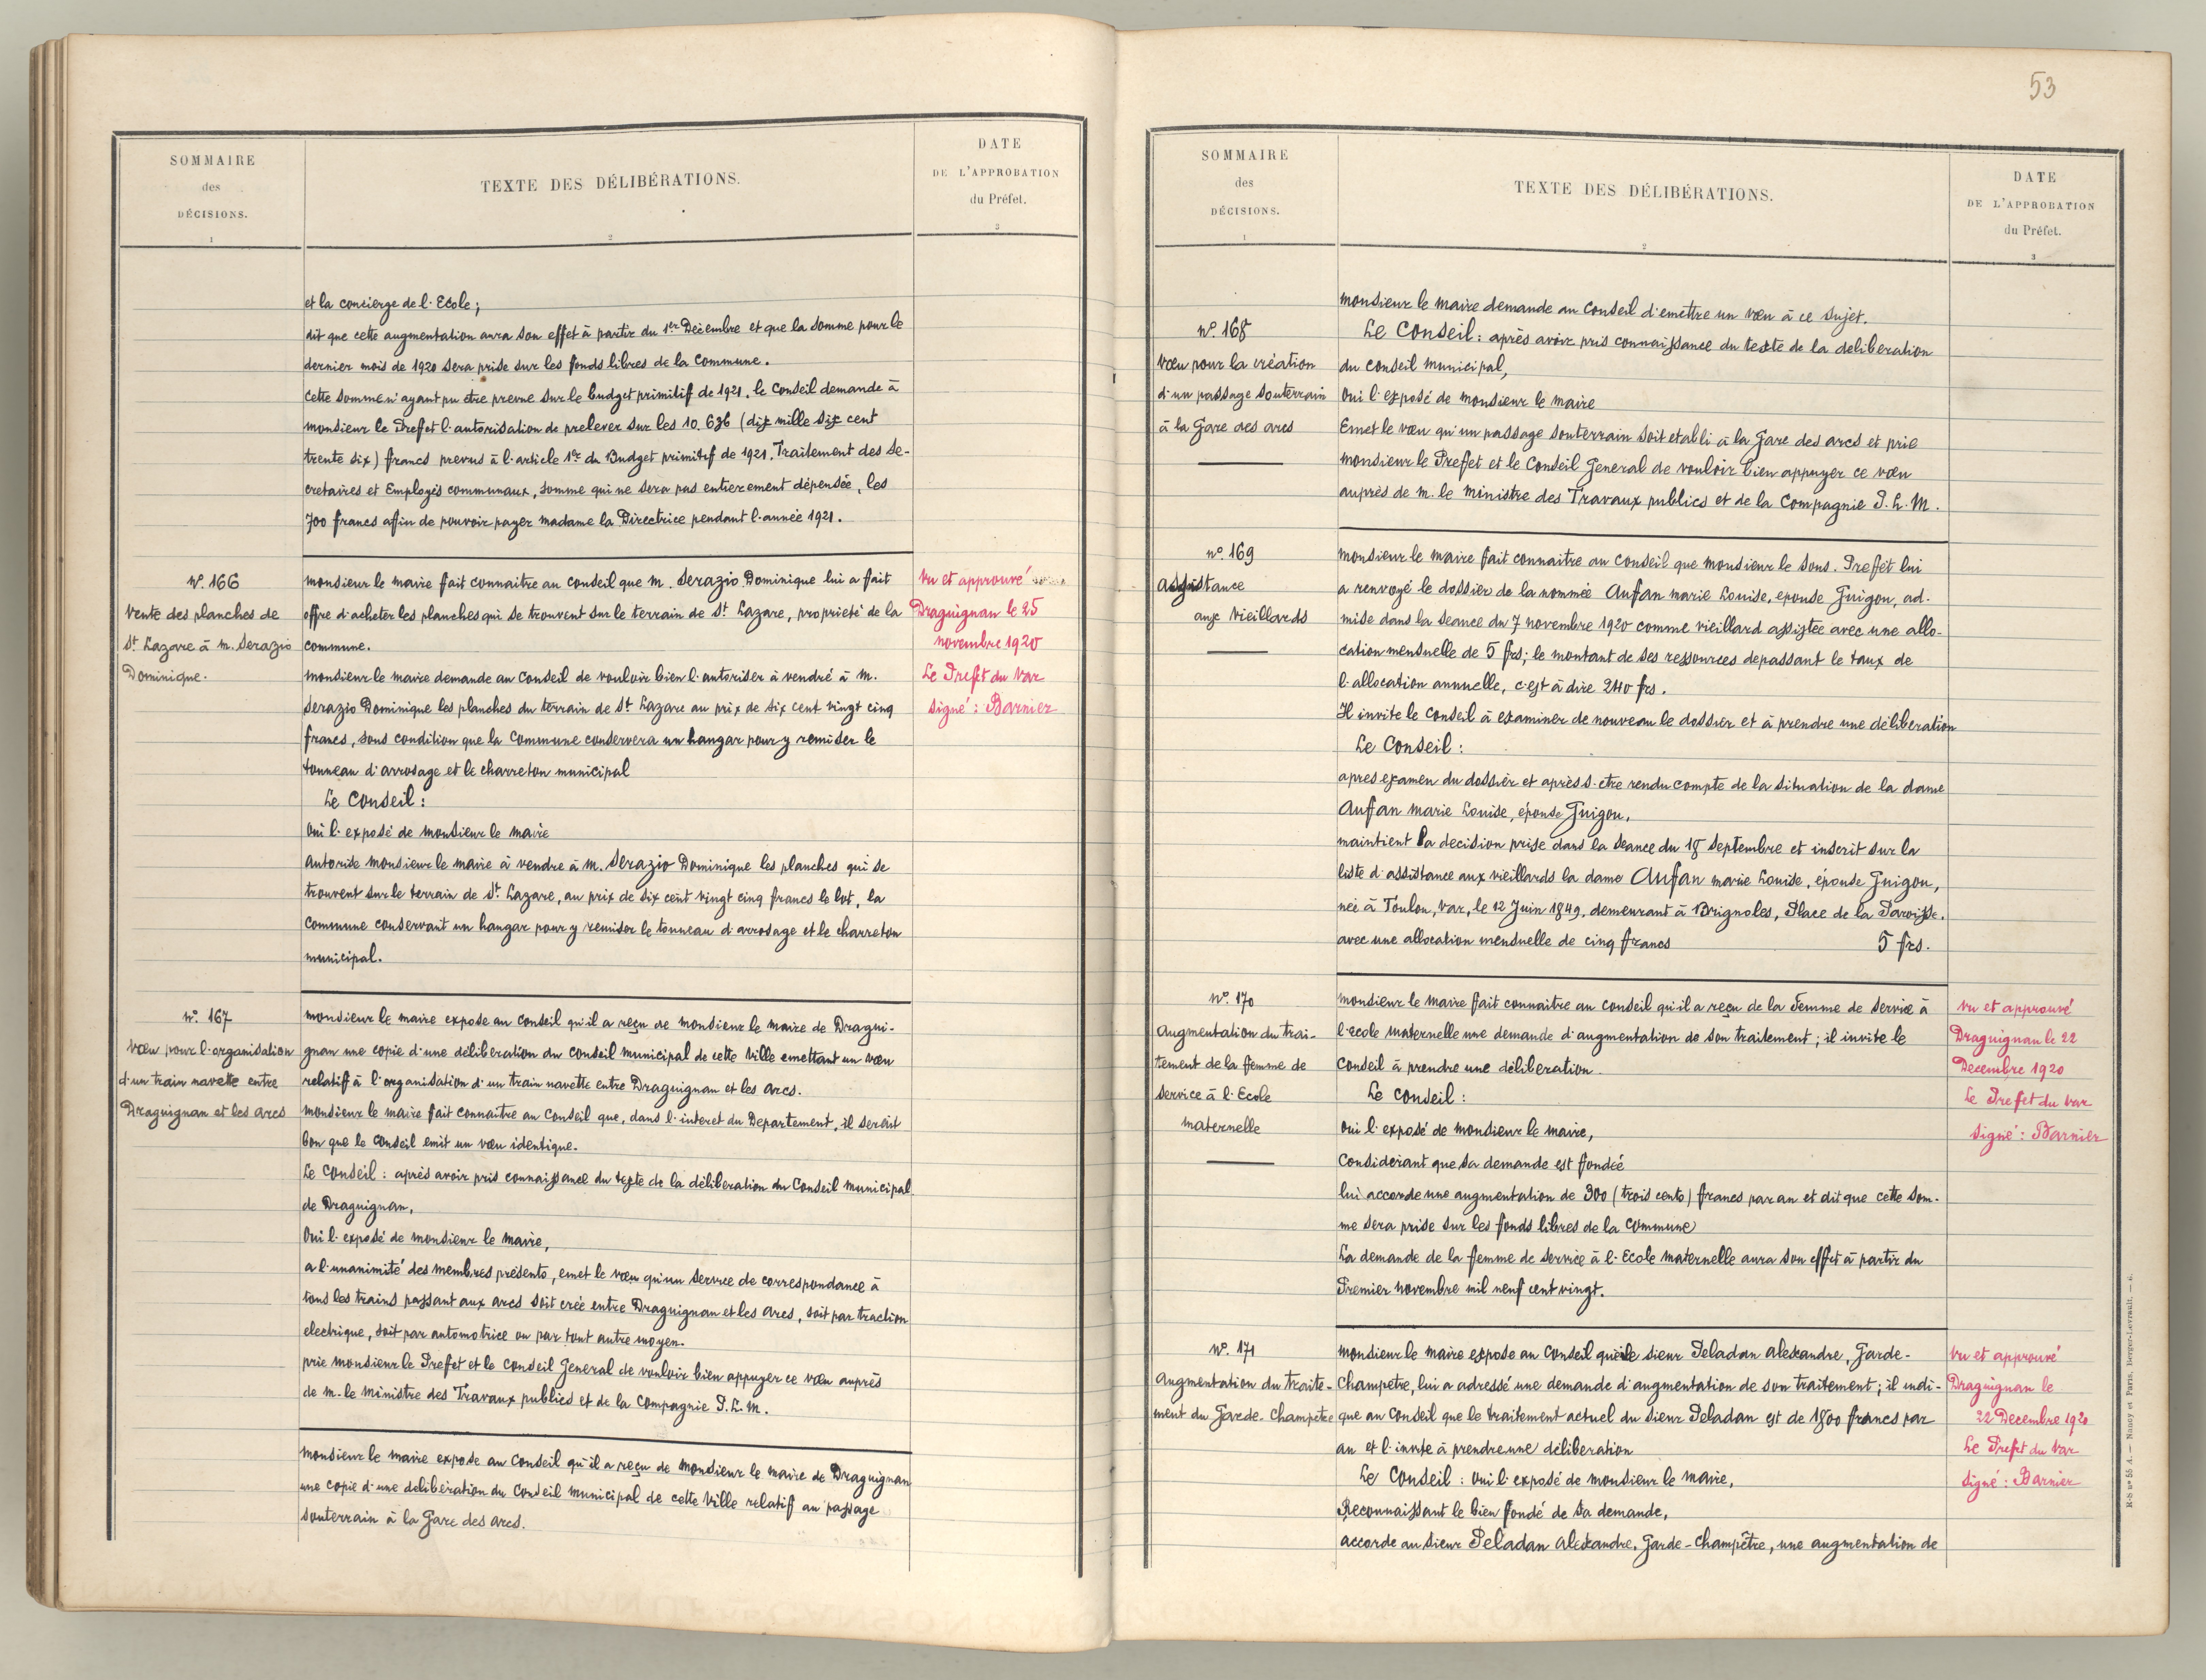 53
SOMMAIRE
des
DÉCISIONS.
1
TEXTE DES DÉLIBÉRATIONS.
2
DATE
DE L'APPROBATION
du Préfet.
3
et la concierge de l. Ecole;
dit que cette augmentation aura son effet à partir du 1er Décembre et que la somme pour le
dernier mois de 1920 sera prise sur les fonds libres de la Commune.
Cette somme n'ayant pu etre prevue sur le budget primitif de 1921, le Conseil demande à
monsieur le Preffet l'autorisation de prelever sur les 10.636 (dix mille six cent
trente six) francs prevus à l'article 1er du Budget primitif de 1921, Traitement des se-
cretaires et Employés communaux, somme qui ne sera pas entierement dépensée, les
700 francs affin de pouvoir payer madame la Directrice pendant l'année 1921.
N°. 166
Vente des planches de
St Lazare à M. Serazio
Dominique.
Monsieur le maire fait connaitre au Conseil que M. Serazio Dominique lui a fait
offre d'acheter les planches qui se trouvent sur le terrain de St Lazare, proprieté de la
Commune.
Monsieur le maire demande au Conseil de vouloir bien l'autoriser à vendré à M.
Serazio Dominique les planches du terrain de St Lazare au prix de six cent vingt cinq
francs, sous condition que la Commune conservera un hangar pour y remiser le
tonneau d'arrosage et le charreton municipal
Le Conseil:
Oui l'exposé de Monsieur le Maire
Autorise Monsieur le Maire à vendre à M. Serazio Dominique les planches qui se
trouvent sur le terrain de St. Lazare, au prix de six cent vingt cinq francs le lot, la
Commune conservant un hangar pour y remiser le tonneau d'arrosage et le charreton
municipal.
Vu et approuvé
Draguignan le 25
novembre 1920
Le Prefet du Var
Signé: Barnier
N°. 167
Vœu pour l'organisation
d'un train navette entre
Draguignan et les Arcs
Monsieur le maire expose au Conseil qu'il a reçu de Monsieur le Maire de Dragui-
gnan une copie d'une déliberation du Conseil Municipal de cette Ville emettant un vœu
relatif à l'organisation d'un train navette entre Draguignan et les Arcs.
Monsieur le Maire fait connaitre au Conseil que, dans l'interet du Departement, il serait
bon que le Conseil emit un vœu identique.
Le Conseil: après avoir pris connaissance du texte de la déliberation du Conseil Municipal
de Draguignan,
Oui l'exposé de Monsieur le Maire,
a l'unanimité des membres présents, emet le vœu qu'un Service de correspondance à
tous les trains passant aux Arcs soit créé entre Draguignan et les Arcs, soit par traction
electrique, soit par automotrice ou par tout autre moyen.
prie Monsieur le Preffet et le Conseil General de vouloir bien appuyer ce vœu auprès
de M. le Ministre des Travaux publics et de la Compagnie P.L.M.
Monsieur le Maire expose au Conseil qu'il a reçu de Monsieur le Maire de Draguignan
une copie d'une deliberation du Conseil Municipal de cette Ville relatif au passage
souterrain à la Gare des Arcs.
SOMMAIRE
des
DÉCISIONS.
1
TEXTE DES DÉLIBÉRATIONS.
2
DATE
DE L'APPROBATION
du Préfet.
3
Monsieur le Maire demande au Conseil d'emettre un vœu à ce sujet.
N°. 168
Vœu pour la création
d'un passage souterrain
à la Gare des Arcs
Le Conseil: après avoir pris connaissance du texte de la deliberation
du Conseil Municipal,
Oui l'exposé de Monsieur le Maire
Emet le vœu qu'un passage souterrain soit etabli à la Gare des Arcs et prie
Monsieur le Preffet et le Conseil General de vouloir bien appuyer ce vœu
auprès de M. le Ministre des Travaux publics et de la Compagnie P.L.M.
N°. 169
Assistance
aux Vieillards
Monsieur le Maire fait connaitre au Conseil que Monsieur le Sous-Preffet lui
a renvoyé le dossier de la nommée Auffan Marie Louise, epouse Guigou, ad-
mise dans la seance du 7 novembre 1920 comme vieillard assistée avec une allo-
cation mensuelle de 5 frs; le montant de ses ressources depassant le taux de
l'allocation annuelle, c'est à dire 240 frs.
Il invite le Conseil à examiner de nouveau le dossier et à prendre une déliberation
Le Conseil:
apres examen du dossier et après s'etre rendu compte de la situation de la dame
Auffan Marie Louise, épouse Guigou,
maintient la decision prise dans la seance du 18 Septembre et inscrit sur la
liste d'assistance aux vieillards la dame Auffan Marie Louise, épouse Guigou,
née à Toulon, Var, le 12 Juin 1849, demeurant à Brignoles, Place de la Paroisse.
avec une allocation mensuelle de cinq francs 5 frs.
N°. 170
Augmentation du trai-
tement de la femme de
service à l'Ecole
Maternelle
Monsieur le Maire fait connaitre au Conseil qu'il a reçu de la Femme de Service à
l'ecole Maternelle une demande d'augmentation de son traitement; il invite le
Conseil à prendre une déliberation.
Le Conseil:
Oui l'exposé de Monsieur le Maire,
Considerant que sa demande est fondeé
lui accorde une augmentation de 300 (trois cents) francs par an et dit que cette som-
me sera prise sur les fonds libres de la Commune
La demande de la femme de service à l'Ecole Maternelle aura son effet à partir du
Premier Novembre mil neuf cent vingt.
Vu et approuvé
Draguignan le 22
Decembre 1920
Le Prefet du Var
Signé: Barnier
N°. 171
Augmentation du Traite-
ment du Garde-Champetre
Monsieur le Maire expose au Conseil que le sieur Peladan Alexandre, Garde-
Champetre, lui a adressé une demande d'augmentation de son traitement; il indi-
que au Conseil que le traitement actuel du sieur Peladan est de 1800 francs par
an et l'invite à prendre une déliberation
Le Conseil: Oui l'exposé de Monsieur le Maire,
Reconnaissant le bien fondé de sa demande,
accorde au sieur Peladan Alexandre, Garde-Champêtre, une augmentation de
Vu et approuvé
Draguignan le
22 Decembre 1920
Le Prefet du Var
Signé: Barnier
Nancy et Paris, Berger-Levrault. — 6.